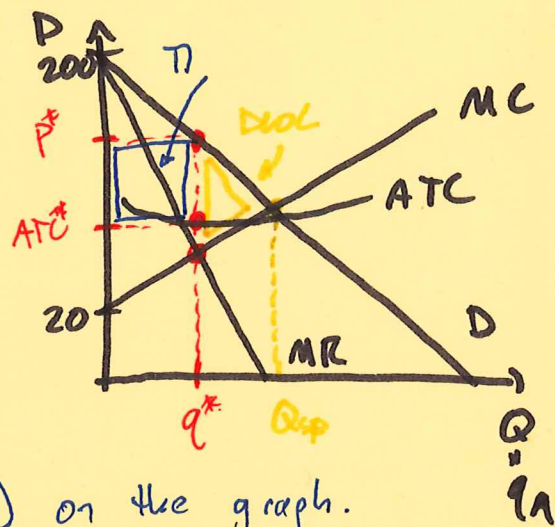 P
200
π
P*
DWL
MC
ATC
ATC*
20
D
MR
q*
Qsp
Q
"
q
) on the graph.